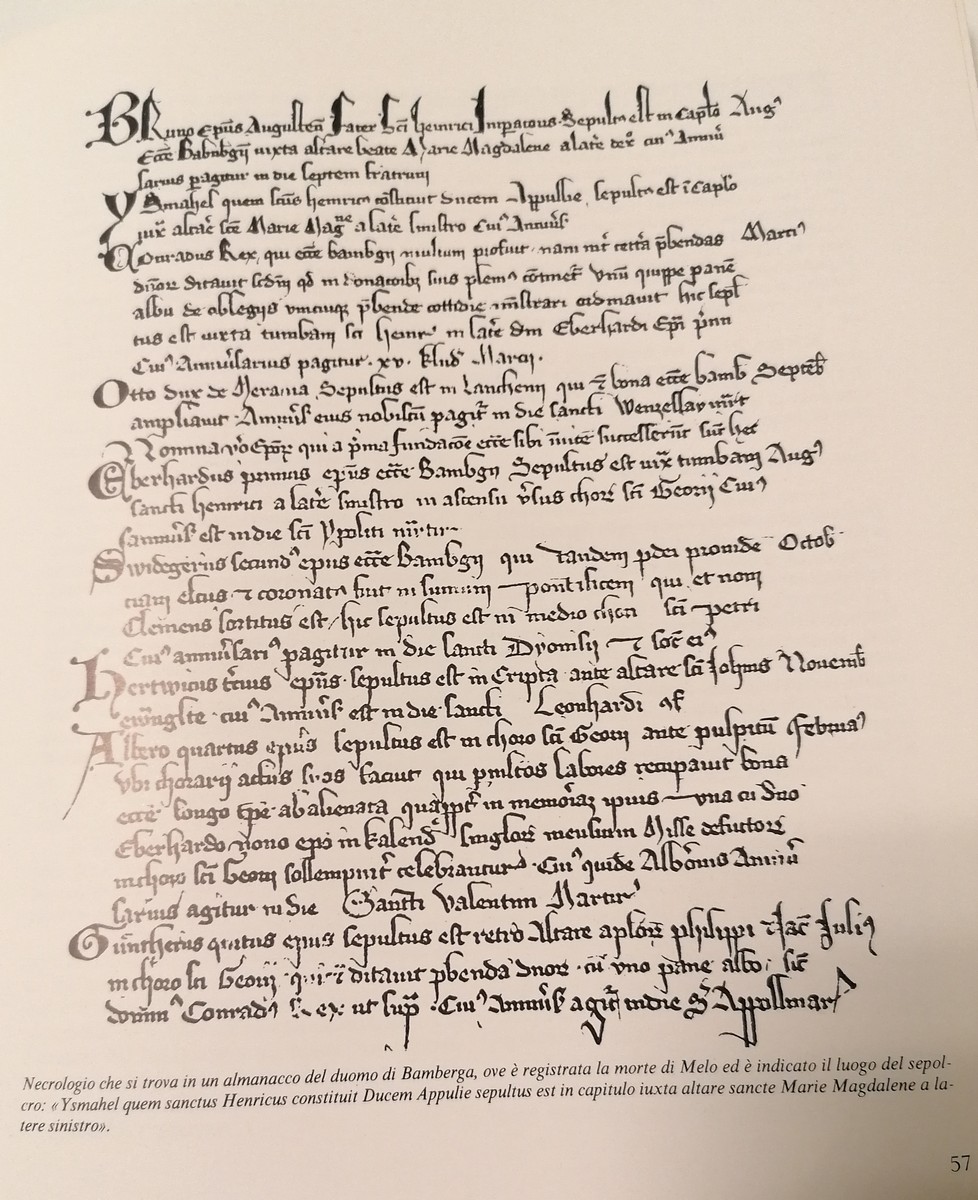 Bruno epũs Augusteñ frater sc̃i heinrici Imp̃atoris. Sepultꝰ est in cap̃lo Augꝰ
Ecc̃e Babnbg̃ iuxta altare beate Marie Magdalene a lat̃e dex̃ cuiꝰ Anniũ
sarius p̃agitur in die septem fratrum
YSmahel quem sc̃us heinricꝰ c̃stituit ducem Appulie, sepultꝰ est ĩ cap̃lo
iux̃ altar̃ sc̃e Marie Magne a lat̃e sinistro Cuiꝰ Anniũs
Conradus Rex, qui ecc̃e bambg̃ multum profuit nam int̃ cet̃a p̃bendas Marciꝰ
dñor̃ ditauit sc̃dm qd̃ in donac̃oib; suis plemꝰ c̃tinet̃ vnũ quippe panẽ
albũ de oblegijs vnicuiqꝫ p̃bende cottidie mĩstrari ordinauit hic sepl̃
tus est iuxta tumbam sc̃i heinrꝰ in lat̃e dm̃ Eberhardi Ep̃i p̃mi
Cuiꝰ Anniũsarius pagitur. xv. kl̃nd̃ Marcij.
Otto dux de Merania Sepultus est in Lanchenn qui ⁊ bona ecc̃e bamb̃ Septeb̃
ampliauit. Anniũs eius nobiscũ pagit̃ in die sancti Wenzeslay mr̃is
Nomina ṽo Ep̃or̃ qui a p̃ma fundac̃oe ecc̃e sibi inuic̃e successerũt sũt hec
Eberhardus primus epũs ecc̃e Bambg̃ Sepultus est iux̃ tumbam Augꝰ
sancti heinrici a lat̃e sinistro in ascensu ṽsus chor̃ sc̃i Georij Cuiꝰ
sanniũs est in die sc̃i Ypoliti mr̃tir
Swidegerus secundꝰ epus ecc̃e Bambg̃ qui tandem p̃ dei prouide Octob̃
ciam elc̃us ⁊ coronatꝰ fuit in summum pontificem qui et nom
Clemens sortitus est, hic sepultus est in medio chori sc̃i petri
Cuiꝰ anniũsariꝰ pagitur in die sancti Dyonisij ⁊ soc̃ eiꝰ
Hertwicus t̃cius epũs. sepultus est in Cripta ante altare sc̃i Johĩs Nouemb̃
ewãgl̃te. cuiꝰ Anniũs est in die sancti Leonhardi
Altero quartus epũs sepultus est in choro sc̃i Georij ante pulpitũ Februaꝰ
vbi chorarij actus suos faciut qui p̃ m̃ltos labores recupauit bona
ecc̃e longo t̃pe abalienata quapp̃t̃ in memoriaꝫ ip̃ius vna cũ dño
Eberhardo nono ep̃o in kalend̃ singlor̃ mensium Misse defũctor̃
in choro sc̃i Georij sollempnit̃ celebrantur. Cuiꝰ quide Alb̃onis Anniũ
sarius agitur in die Sancti Valentini Martirꝰ
Guntherus quitus epus sepultus est retro Altare ap̃lor̃ philippi ⁊ Jac̃ Juliꝰ
in choro sc̃i Georij qui ⁊ ditauit p̃benda dñor̃. cũ vno pane albo, sic̃
dominꝰ Conradꝰ Rex ut sup̃. Cuiꝰ Anniũs agit̃ in die S̃ Appollinarꝰ
Necrologio che si trova in un almanacco del duomo di Bamberga, ove è registrata la morte di Melo ed è indicato il luogo del sepol-
cro: «Ysmahel quem sanctus Henricus constituit Ducem Appulie sepultus est in capitulo iuxta altare sancte Marie Magdalene a la-
tere sinistro».
57